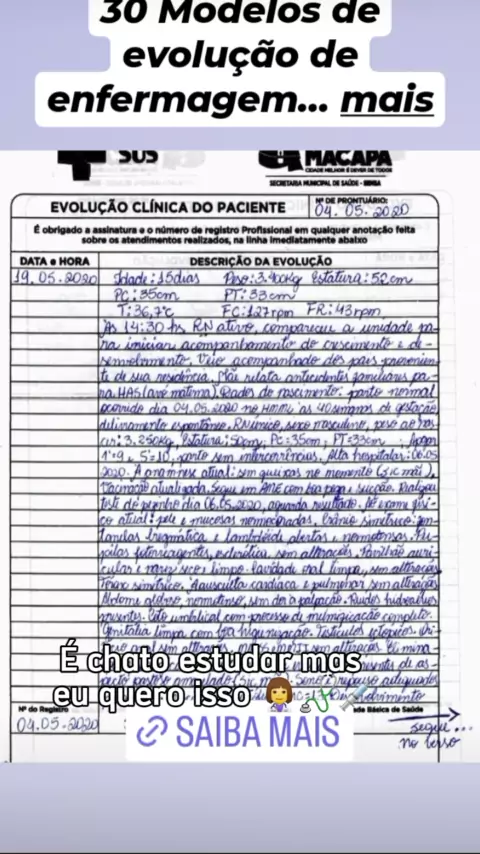 30 Modelos de
evolução de
enfermagem... mais
SUS
MACAPÁ
CIDADE MELHOR É DEVER DE TODOS
SECRETARIA MUNICIPAL DE SAÚDE - SEMSA
EVOLUÇÃO CLÍNICA DO PACIENTE
Nº DE PRONTUÁRIO:
04.05.2020
É obrigado a assinatura e o número de registro Profissional em qualquer anotação feita
sobre os atendimentos realizados, na linha imediatamente abaixo
DATA e HORA
DESCRIÇÃO DA EVOLUÇÃO
19.05.2020 Idade: 15 dias Peso: 3.400kg Estatura: 52cm
PC: 35cm PT: 33cm
T: 36,7°c FC: 127 rpm FR: 43 rpm
Às 14:30 hs RN ativo, compareceu a unidade pa-
ra iniciar acompanhamento do crescimento e de-
senvolvimento. Veio acompanhado dos pais provenien-
te de sua residência. Mãe relata antecedentes familiares pa-
ra HAS (avó materna). Dados do nascimento: parto normal
ocorrido dia 04.05.2020 no HMML às 40 semanas de gestação,
delivramento espontâneo, RN único, sexo masculino, peso ao nas-
cer: 3.250kg, Estatura: 50cm, PC: 35cm, PT: 33cm, Apgar
1º 9 e 5º 10, parto sem intercorrências. Alta hospitalar: 06.05
2020. A anamnese atual: sem queixas no momento (sic mãe),
Vacinação atualizada. Segue em AME com boa pega e sucção. Realizou
teste do pezinho dia 06.05.2020, aguarda resultado. Ao exame físi-
co atual: pele e mucosas normocoradas, Crânio simétrico: fon-
tanelas bregmática e lambdóide abertas e normotensas. Pu-
pilas fotorreagentes, esclerótica, sem alterações. Pavilhão auri-
cular e nariz sico e limpo. Cavidade oral limpa, sem alterações
Tórax simétrico, Ausculta cardíaca e pulmonar sem alterações
Abdome globoso, normotenso, sem dor à palpação. Ruídos hidroaéreos
presentes. Coto umbilical com processo de mumificação completo.
Genitália limpa com boa higienização. Testículos ectópicos.
sem alterações
pecto pastoso amarelado (sic mãe). Sono e repouso adequados
desenvolvimento
É chato estudar mas
eu quero isso 👩‍⚕️🩺💉
Nº do Registro
ade Básica de Saúde
04.05.2020
segue...
no verso
SAIBA MAIS